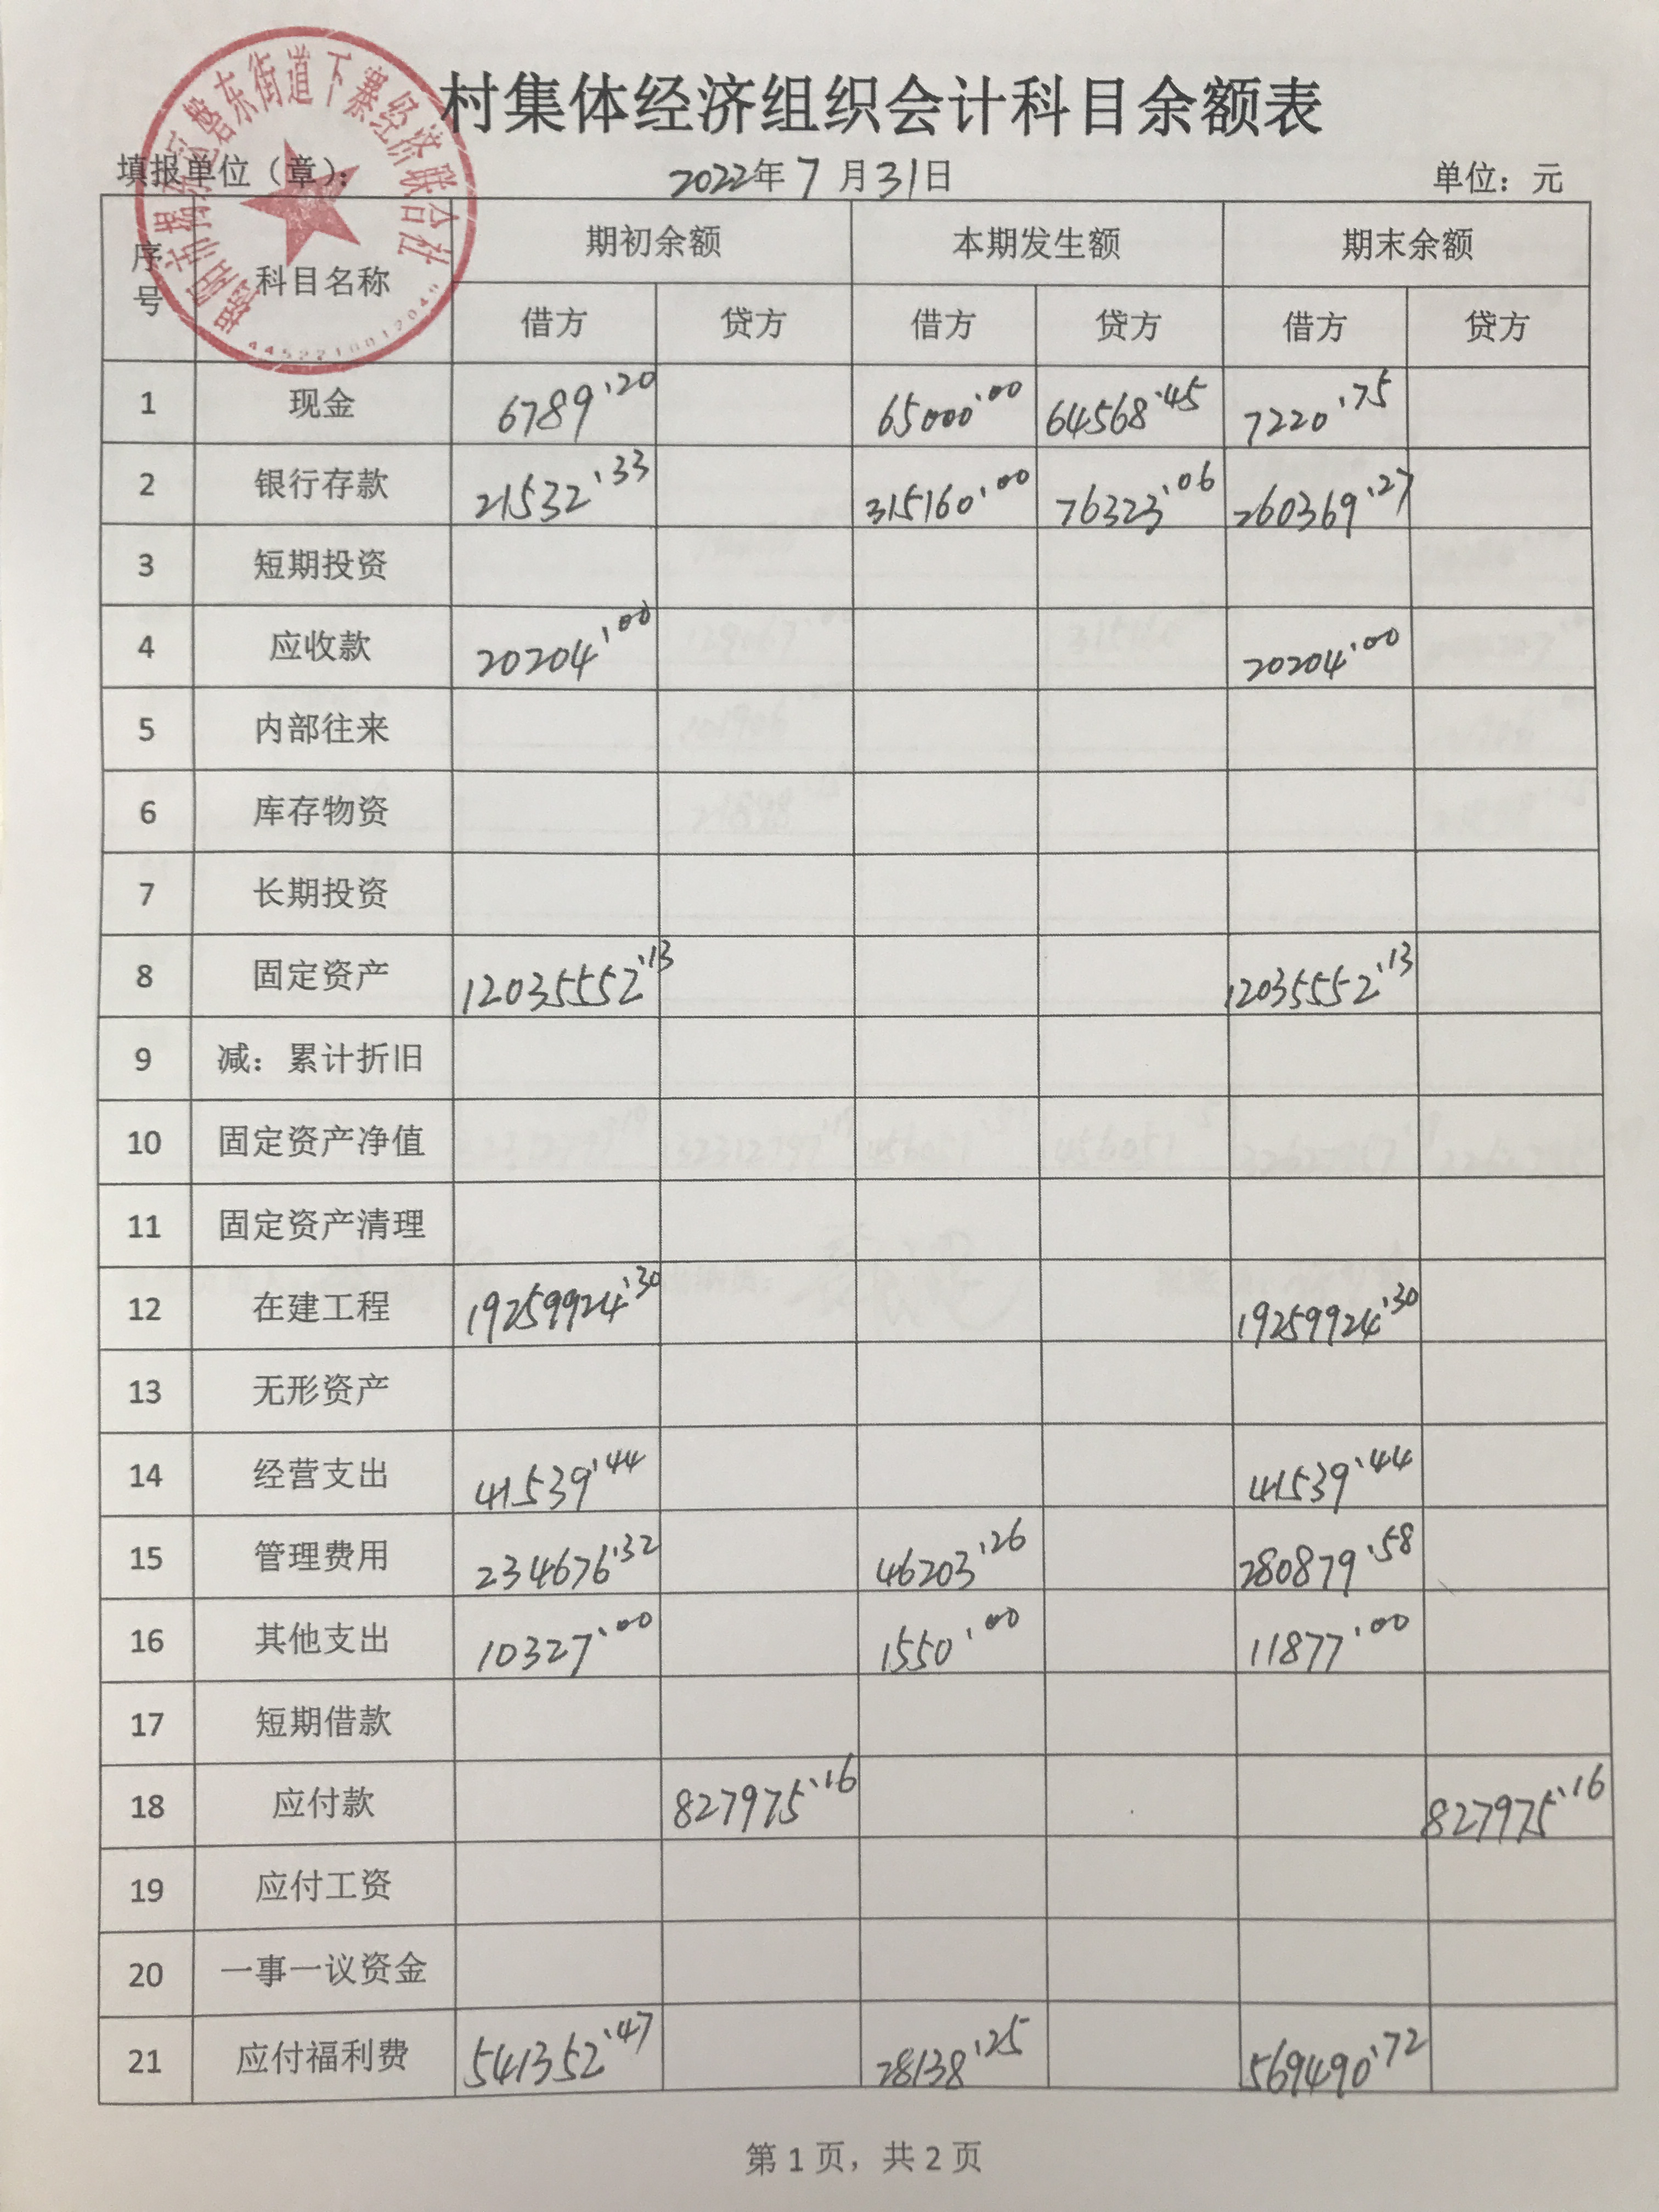 村集体经济组织会计科目余额表
揭阳市揭东区磐东街道下寨经济联合社
填报单位（章）： 2022年7月31日 单位：元
序号 科目名称 期初余额 本期发生额 期末余额
借方 贷方 借方 贷方 借方 贷方
1 现金 6789.20 65000.00 64568.45 7220.75
2 银行存款 21532.33 315160.00 76323.06 260369.27
3 短期投资
4 应收款 20204.00 20204.00
5 内部往来
6 库存物资
7 长期投资
8 固定资产 12035552.13 12035552.13
9 减：累计折旧
10 固定资产净值
11 固定资产清理
12 在建工程 19259924.30 19259924.30
13 无形资产
14 经营支出 41539.44 41539.44
15 管理费用 234676.32 46203.26 280879.58
16 其他支出 10327.00 1550.00 11877.00
17 短期借款
18 应付款 827975.16 827975.16
19 应付工资
20 一事一议资金
21 应付福利费 541352.47 28138.25 569490.72
第1页，共2页